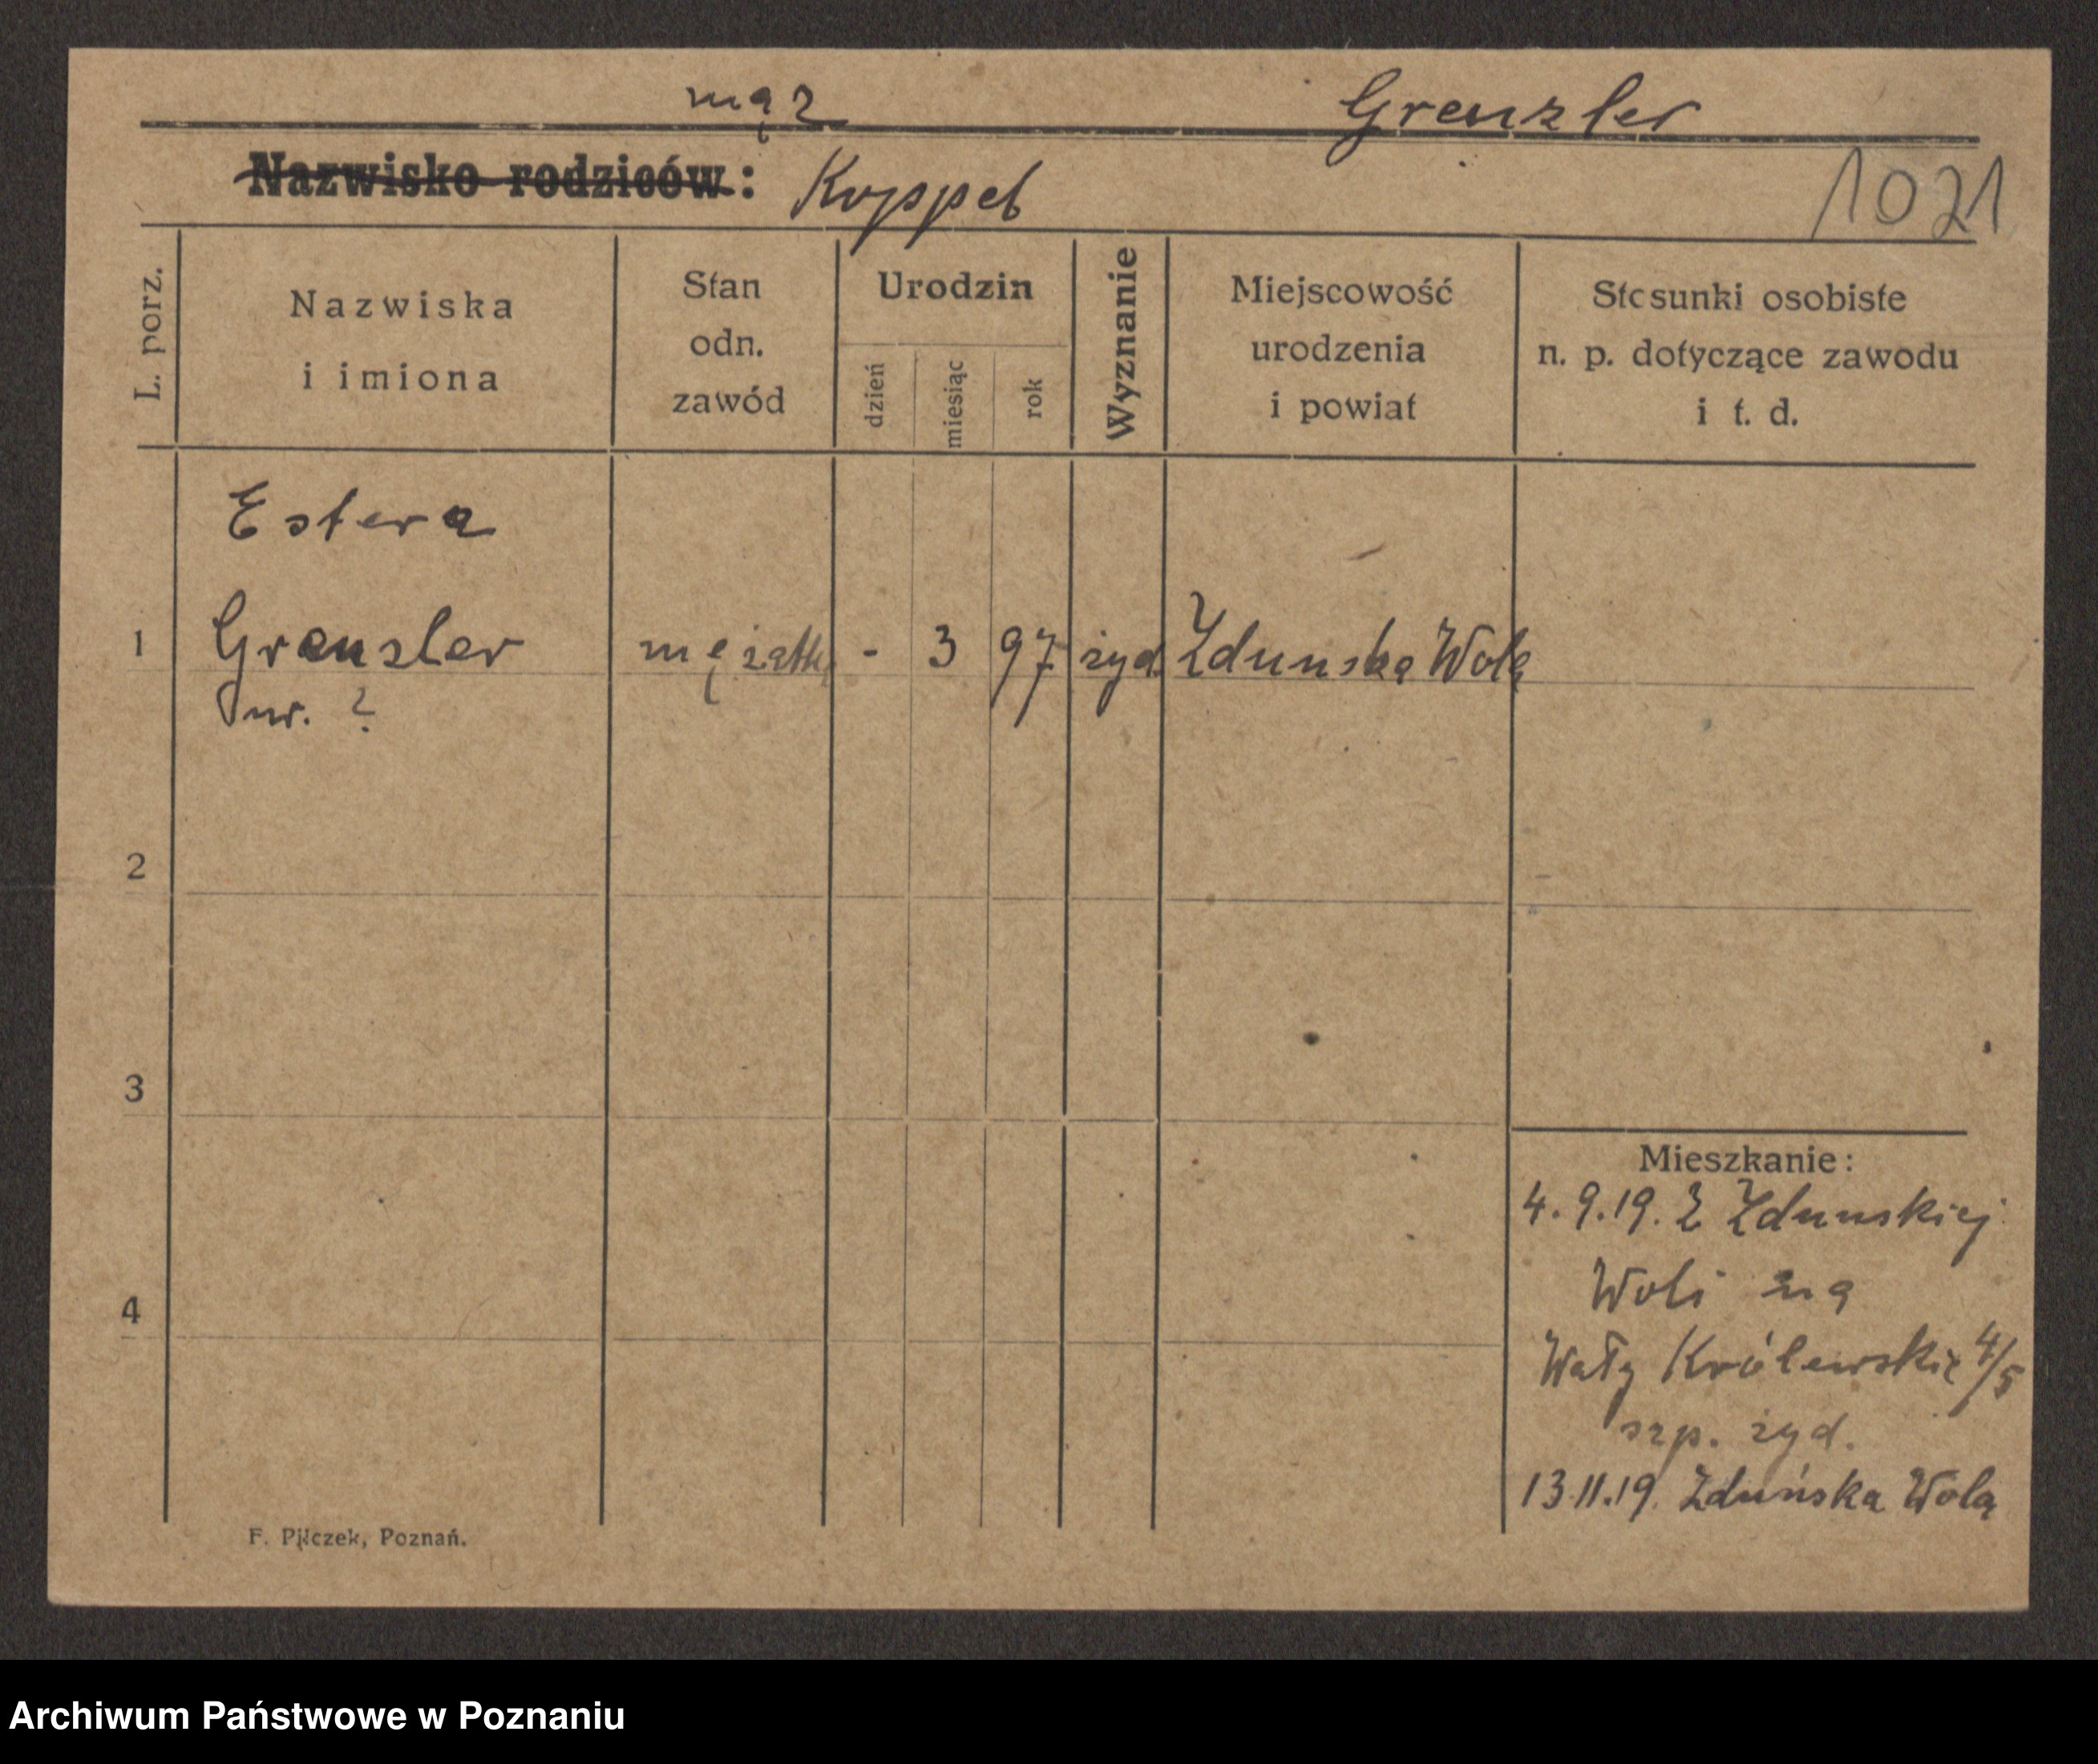 mąż Grenzler
Nazwisko rodziców: Koppel
1021
L. porz.
Nazwiska
i imiona
Stan
odn.
zawód
Urodzin
dzień
miesiąc
rok
Wyznanie
Miejscowość
urodzenia
i powiat
Stosunki osobiste
n. p. dotyczące zawodu
i t. d.
Estera
1 Grensler mężatka - 3 97 żyd. Zdunska Wola
ur. ?
2
3
4
Mieszkanie:
4.9.19. Z Zdunskiej
Woli na
Wały Królewskie 4/5
szp. żyd.
13.11.19. Zduńska Wola
F. Pilczek, Poznań.
Archiwum Państwowe w Poznaniu